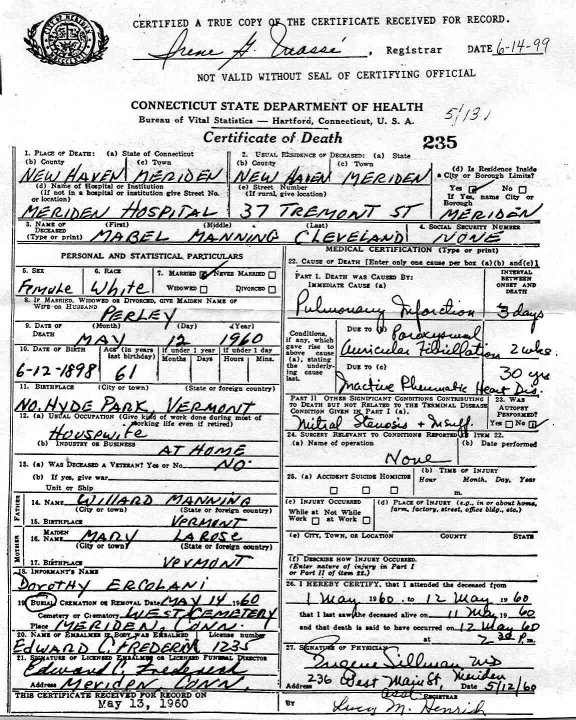 CERTIFIED A TRUE COPY OF THE CERTIFICATE RECEIVED FOR RECORD.
Irene G. Massé, Registrar DATE 6-14-99
NOT VALID WITHOUT SEAL OF CERTIFYING OFFICIAL
CONNECTICUT STATE DEPARTMENT OF HEALTH
Bureau of Vital Statistics — Hartford, Connecticut, U. S. A.
5/131
Certificate of Death 235
1. PLACE OF DEATH: (a) State of Connecticut
(b) County (c) Town
NEW HAVEN MERIDEN
2. USUAL RESIDENCE OF DECEASED: (a) State
(b) County (c) Town
NEW HAVEN MERIDEN
(d) Is Residence Inside a City or Borough Limits?
Yes No
If Yes, name City or Borough
MERIDEN
(d) Name of Hospital or Institution
(If not in a hospital or institution give Street No. or location)
MERIDEN HOSPITAL
(e) Street Number
(If rural, give location)
37 TREMONT ST
3. NAME OF DECEASED (Type or print) (First) (Middle) (Last)
MABEL MANNING CLEVELAND
4. SOCIAL SECURITY NUMBER
NONE
PERSONAL AND STATISTICAL PARTICULARS
5. SEX 6. RACE 7. MARRIED NEVER MARRIED
Female White WIDOWED DIVORCED
8. IF MARRIED, WIDOWED OR DIVORCED, GIVE MAIDEN NAME OF WIFE OR HUSBAND
PERLEY
9. DATE OF DEATH (Month) (Day) (Year)
MAY 12 1960
10. DATE OF BIRTH AGE (in years last birthday) if under 1 year Months Days if under 1 day Hours Mins.
6-12-1898 61
11. BIRTHPLACE (City or town) (State or foreign country)
NO. HYDE PARK VERMONT
12. (a) USUAL OCCUPATION (Give kind of work done during most of working life even if retired)
HOUSEWIFE
(b) INDUSTRY OR BUSINESS
AT HOME
13. (a) WAS DECEASED A VETERAN? Yes or No. NO.
(b) If yes, give war
Unit or Ship
FATHER
14. NAME WILLARD MANNING
(City or town) (State or foreign country)
15. BIRTHPLACE VERMONT
MOTHER
16. MAIDEN NAME MARY LAROSE
(City or town) (State or foreign country)
17. BIRTHPLACE VERMONT
18. INFORMANT'S NAME
DOROTHY ERCOLANI
19. BURIAL CREMATION OR REMOVAL DATE MAY 14 1960
Cemetery or Crematory, WEST CEMETERY
Place MERIDEN, CONN.
20. NAME OF EMBALMER IF BODY WAS EMBALMED License number
EDWARD C. FREDERICK 1235
21. SIGNATURE OF LICENSED EMBALMER OR LICENSED FUNERAL DIRECTOR
Edward C. Frederick
Address Meriden Conn.
THIS CERTIFICATE RECEIVED FOR RECORD ON
May 13, 1960
MEDICAL CERTIFICATION (Type or print)
22. CAUSE OF DEATH [Enter only one cause per box (a)(b) and (c)]
PART I. DEATH WAS CAUSED BY:
Immediate CAUSE (a)
INTERVAL BETWEEN ONSET AND DEATH
Pulmonary Infarction 3 days
Conditions, if any, which gave rise to above cause (a), stating the underlying cause last.
DUE TO (b) Paroxysmal
Auricular Fibrillation 2 wks.
DUE TO (c) 30 yrs
Inactive Rheumatic Heart Dis.
PART II OTHER SIGNIFICANT CONDITIONS CONTRIBUTING TO DEATH BUT NOT RELATED TO THE TERMINAL DISEASE CONDITION GIVEN IN PART I (a).
Mitral Stenosis + Insuff.
23. WAS AUTOPSY PERFORMED?
YES NO
24. SURGERY RELEVANT TO CONDITIONS REPORTED IN ITEM 22.
(a) Name of operation (b) Date performed
None
25. (a) ACCIDENT SUICIDE HOMICIDE
(b) TIME OF INJURY
Hour Month, Day, Year
m.
(c) INJURY OCCURRED
While at Work Not While at Work
(d) PLACE OF INJURY (e.g., in or about home, farm, factory, street, office bldg., etc.)
(e) CITY, TOWN, OR LOCATION COUNTY STATE
(f) DESCRIBE HOW INJURY OCCURRED.
(Enter nature of injury in Part I or Part II of item 22.)
26. I HEREBY CERTIFY, that I attended the deceased from
1 May 1960 to 12 May 1960
that I last saw the deceased alive on 11 May 1960
and that death is said to have occurred on 12 May 60
at 2 30 P.m.
27. SIGNATURE OF PHYSICIAN
Eugene Sillman MD
Address 236 West Main St, Meriden 5/12/60
asst. REGISTRAR
BY Lucy M. Henrich